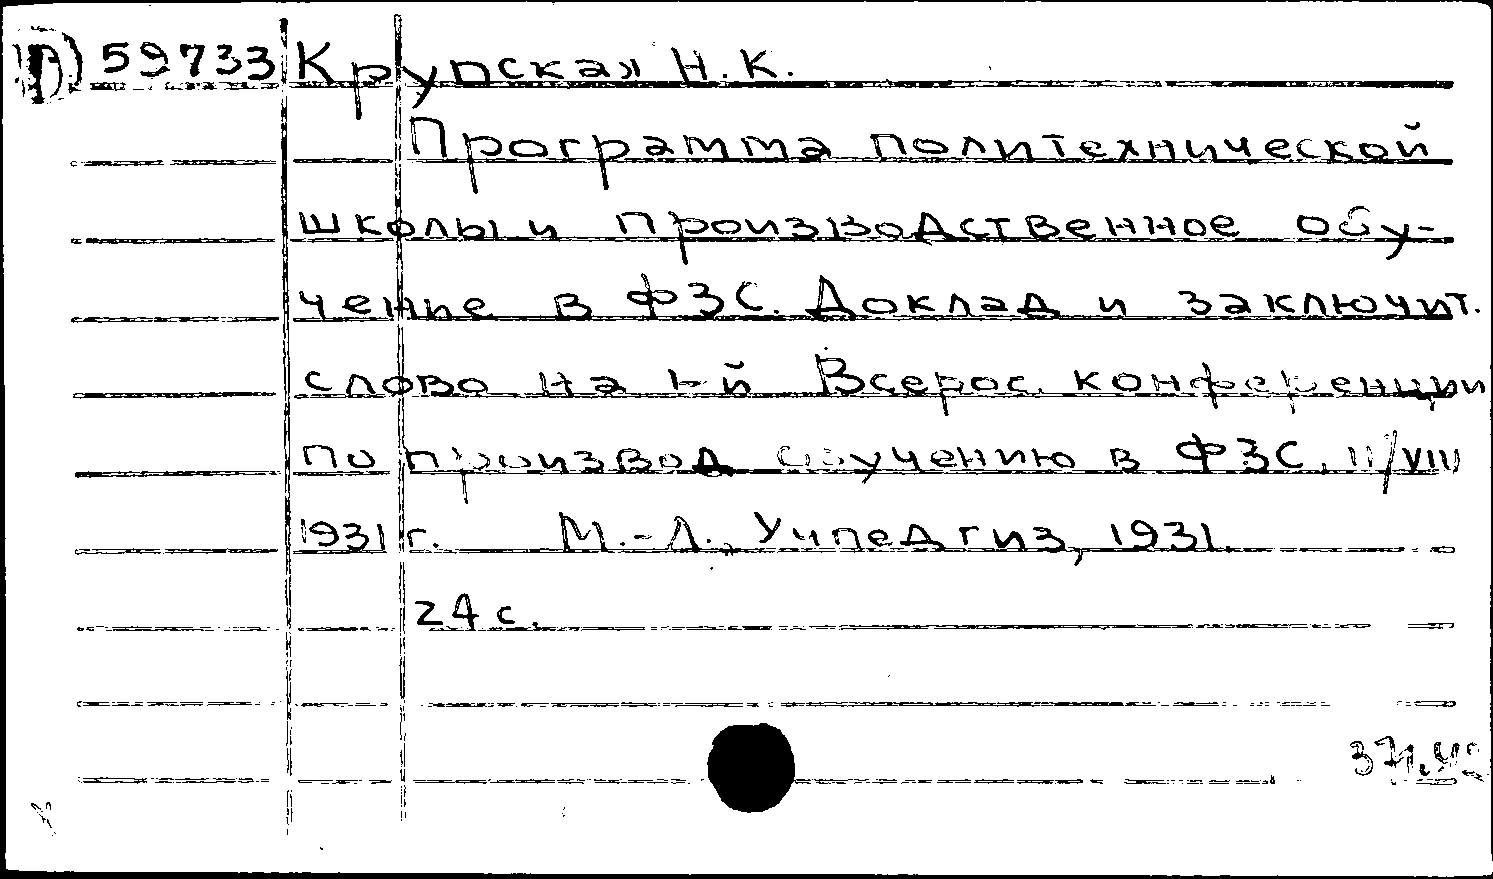 59733 Крупская Н. К.
Программа политехнической
школы и производственное обу-
чение в ФЗС. Доклад и заключит.
слово на 1-й Всерос. конференции
по производ обучению в ФЗС, 11/VIII
1931 г. М.-Л., Учпедгиз, 1931.
24 с.